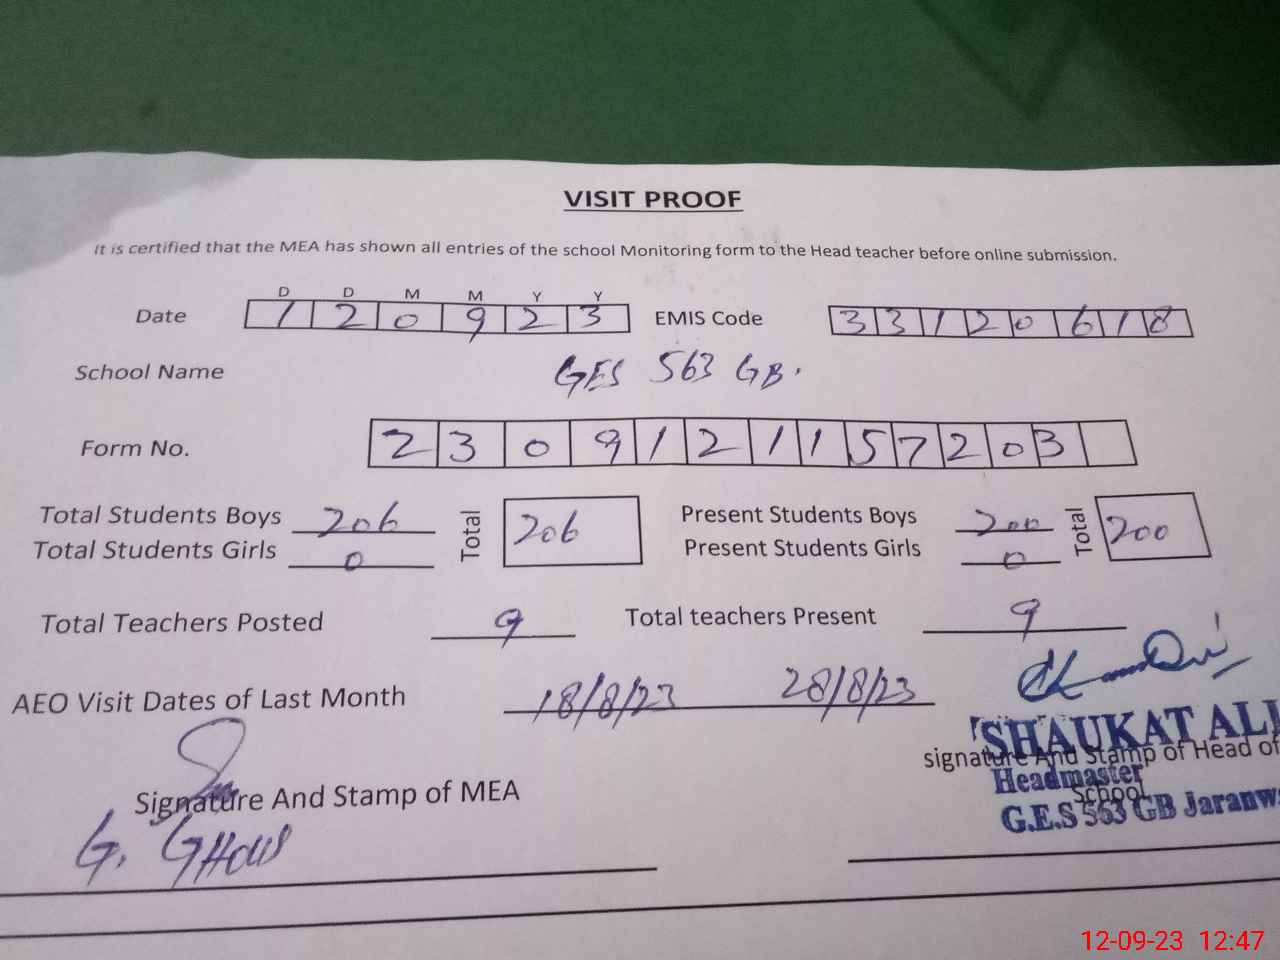 VISIT PROOF
It is certified that the MEA has shown all entries of the school Monitoring form to the Head teacher before online submission.
D D M M Y Y
Date 1 2 0 9 2 3 EMIS Code 3 3 1 2 0 6 1 8
School Name GES 563 GB.
Form No. 2 3 0 9 1 2 1 1 5 7 2 0 3
Total Students Boys 206 Total 206 Present Students Boys 200 Total 200
Total Students Girls 0 Present Students Girls 0
Total Teachers Posted 9 Total teachers Present 9
AEO Visit Dates of Last Month 18/8/23 28/8/23
SHAUKAT ALI
signature And Stamp of Head of
Headmaster
School
G.E.S 563 GB Jaranw
Signature And Stamp of MEA
G. GHOUS
12-09-23 12:47